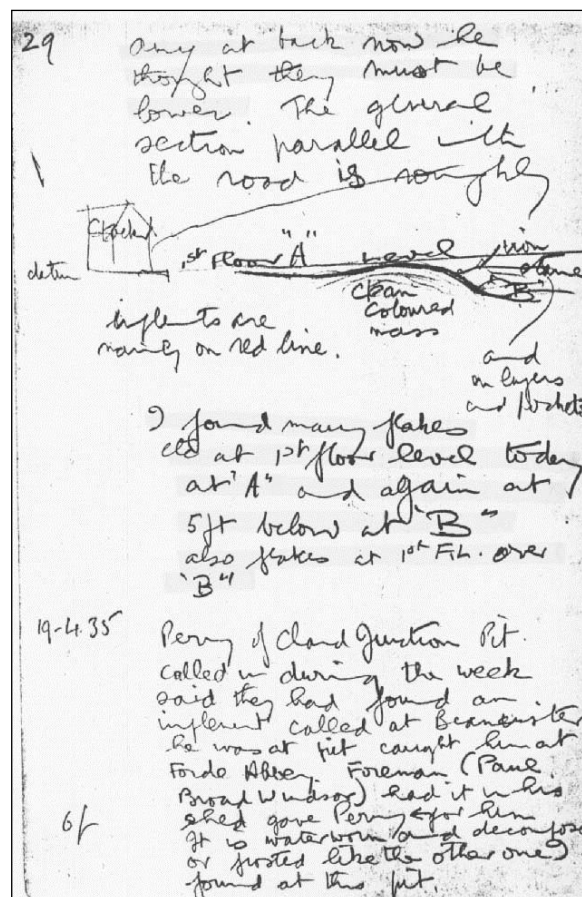 29
away at back now he
thought they must be
lower. The general
section parallel with
the road is roughly
Clocks
datum
1st Floor "A" Level
iron
stone
"B"
clean
coloured
mass
implents are
mainly on red line.
and
on layers
and pockets
I found many flakes
etc at 1st floor level today
at "A" and again at
5ft below at "B"
also flakes at 1st F.L. over
"B"
19-4.35
Perry of Chard Junction Pit.
called in during the week
said they had found an
implement called at Beaminster
he was at pit caught him at
Forde Abbey. Foreman (Paul
Broad Windsor) had it in his
6/
shed gave Perry for him
It is waterworn and decomposed
or frosted like the other one I
found at this pit.